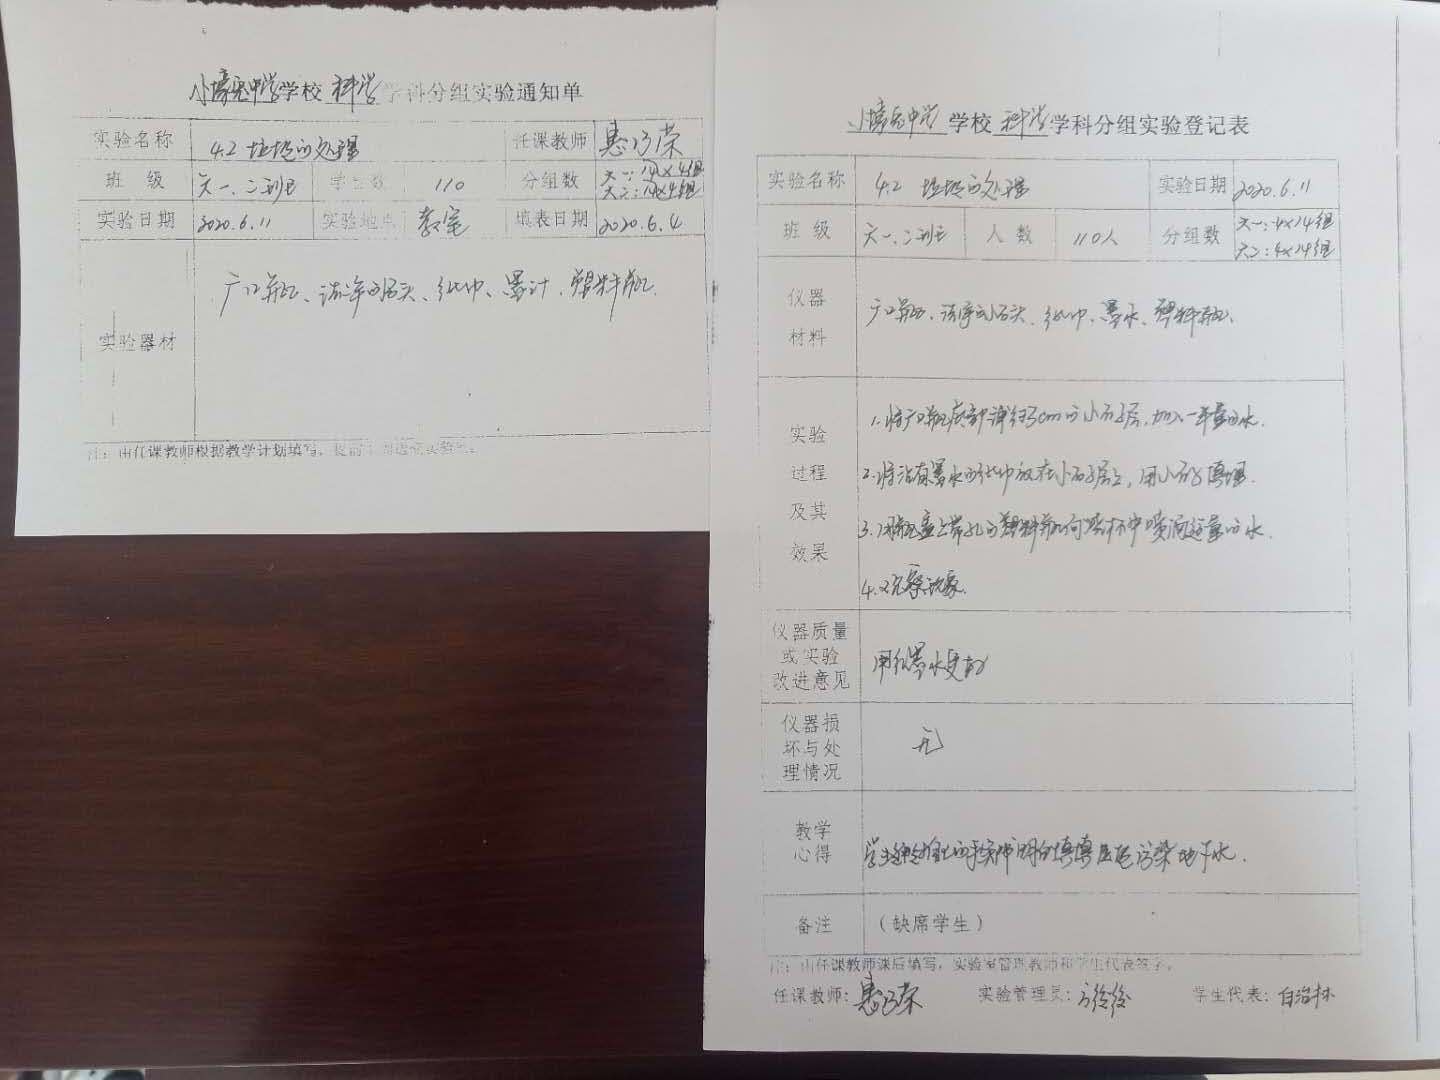 小壕兔中学学校 科学 学科分组实验通知单
实验名称 4.2 垃圾的处理 任课教师 惠巧荣
班 级 六一、二班 学生数 110 分组数 六一:14×4组
六二:14×4组
实验日期 2020.6.11 实验地点 教室 填表日期 2020.6.4
广口瓶、洁净的石头、纸巾、墨汁、塑料瓶.
实验器材
注:由任课教师根据教学计划填写,
小壕兔中学 学校 科学 学科分组实验登记表
实验名称 4.2 垃圾的处理 实验日期 2020.6.11
班 级 六一、二班 人 数 110人 分组数 六一:4×14组
六二:4×14组
仪器
材料
广口瓶、洁净的石头、纸巾、墨水、塑料瓶.
实验
过程
及其
效果
1.将广口瓶底部铺约3cm的小石子层,加入一半量的水.
2.将沾有墨水的纸巾放在小石子层上,用小石子填埋.
3.用瓶盖上带孔的塑料瓶向烧杯中喷洒适量的水.
4.观察现象.
仪器质量
或实验
改进意见
用红墨水更好
仪器损
坏与处
理情况
无
教学
心得
污染地下水.
备注 (缺席学生)
注:由任课教师课后填写,实验室管理教师和学生代表签字。
任课教师:惠巧荣 实验管理员: 学生代表:白治林